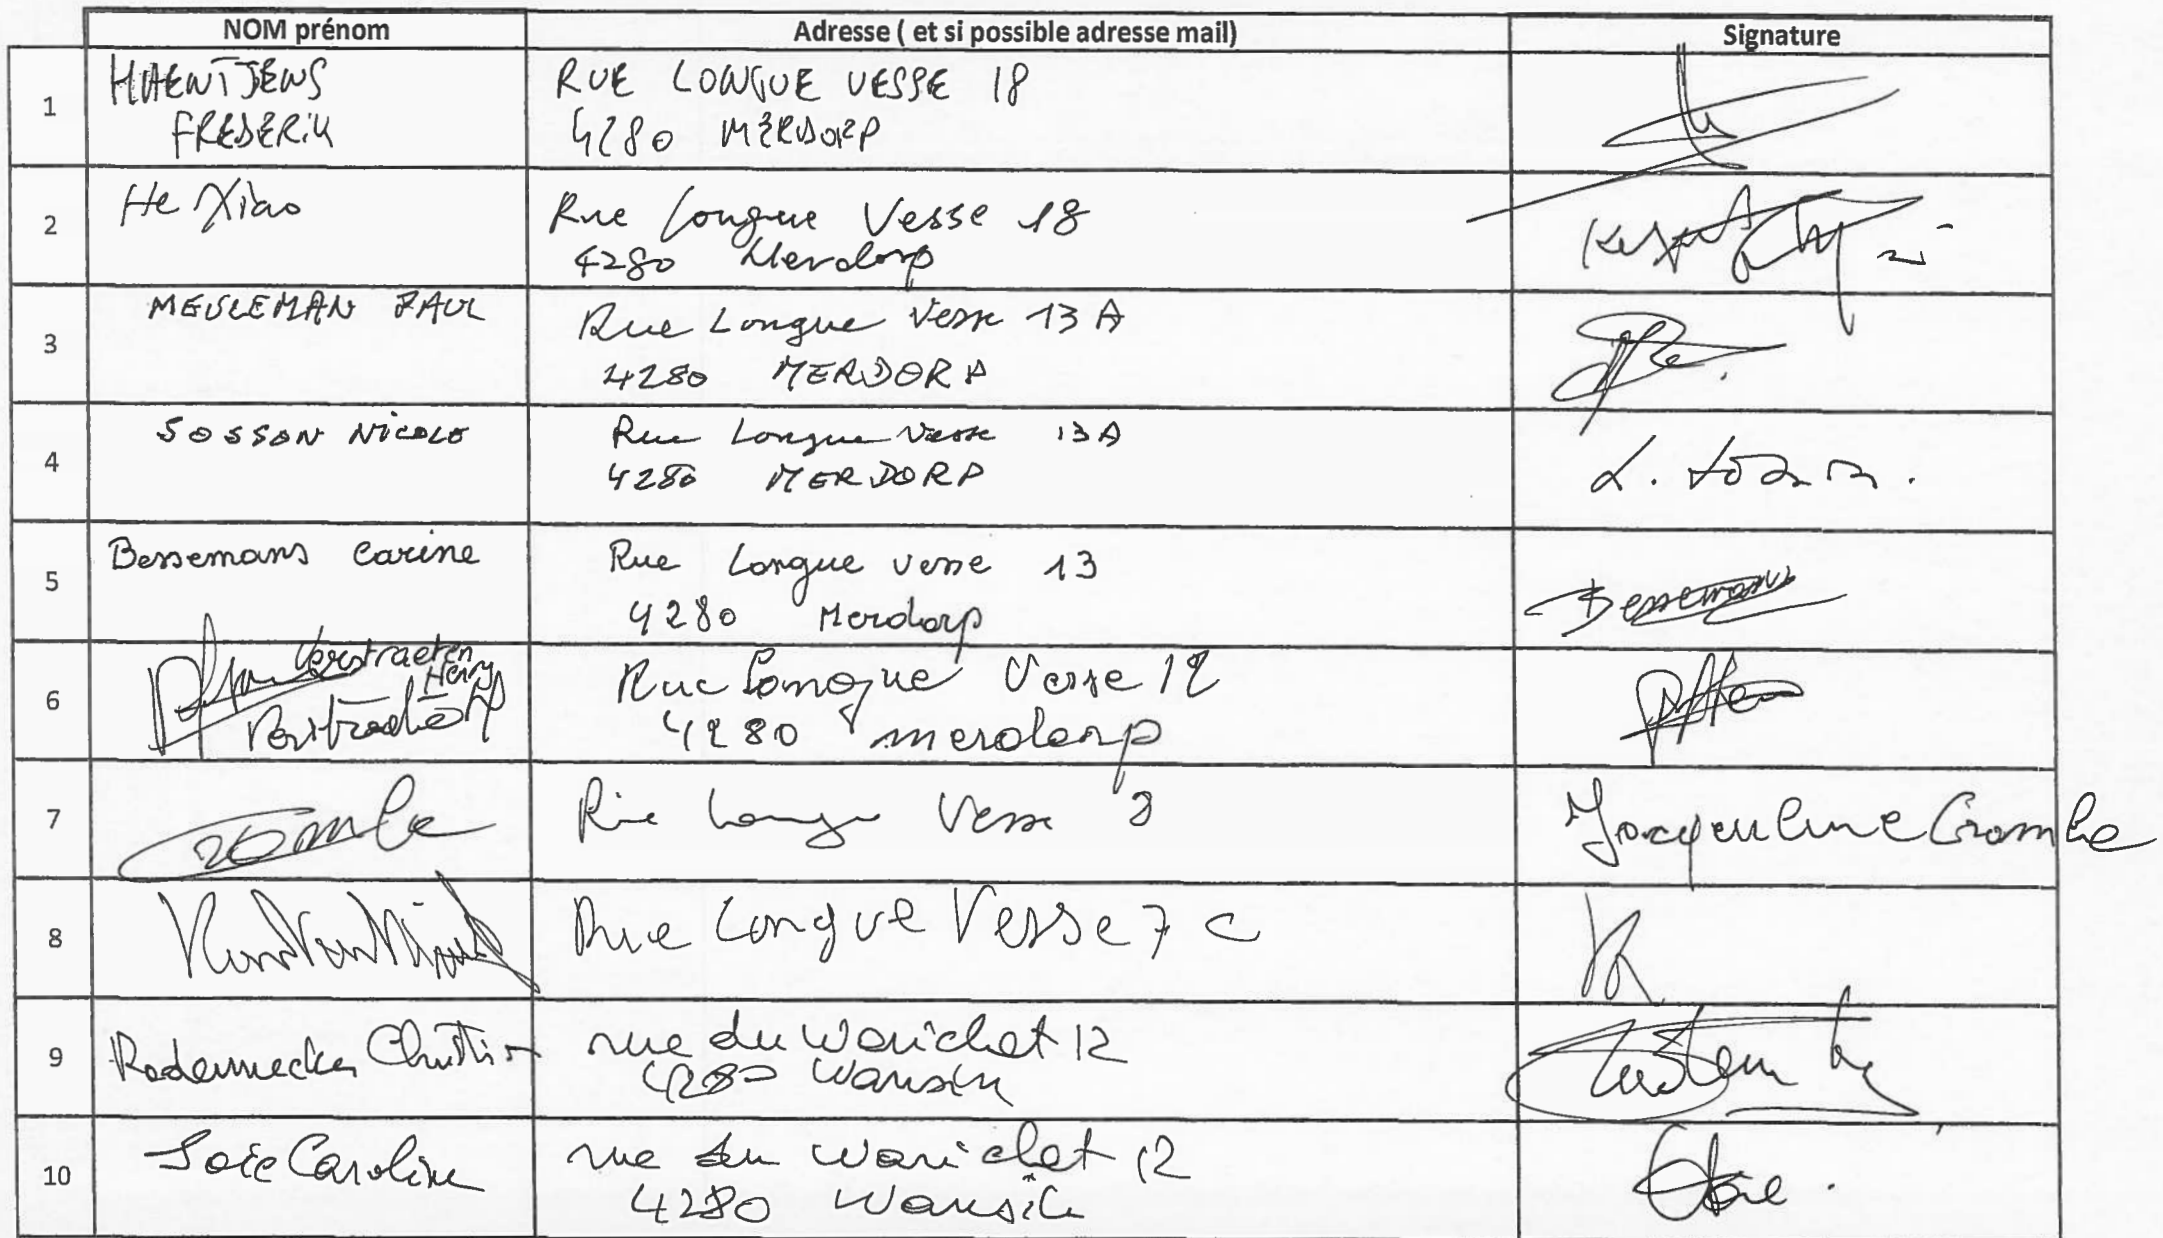 NOM prénom
Adresse ( et si possible adresse mail)
Signature
1
HAENTJENS
FREDERIK
RUE LONGUE VESSE 18
4280 MERDORP
2
He Xiao
Rue Longue Vesse 18
4280 Merdorp
3
MEULEMAN PAUL
Rue Longue Vesse 13 A
4280 MERDORP
4
SOSSON NICOLE
Rue Longue Vesse 13A
4280 MERDORP
5
Bessemans Carine
Rue Longue vesse 13
4280 Merdorp
Bessemans
6
Verstraeten
Henry
Rue Longue Vesse 12
4280 merdorp
7
Crombe
Rue Longue Vesse 3
Jacqueline Crombe
8
Rue Longue Vesse 7 C
9
Radermecker Christian
rue du Warichet 12
4280 Wansin
10
Soie Caroline
rue du Warichet 12
4280 Wansin